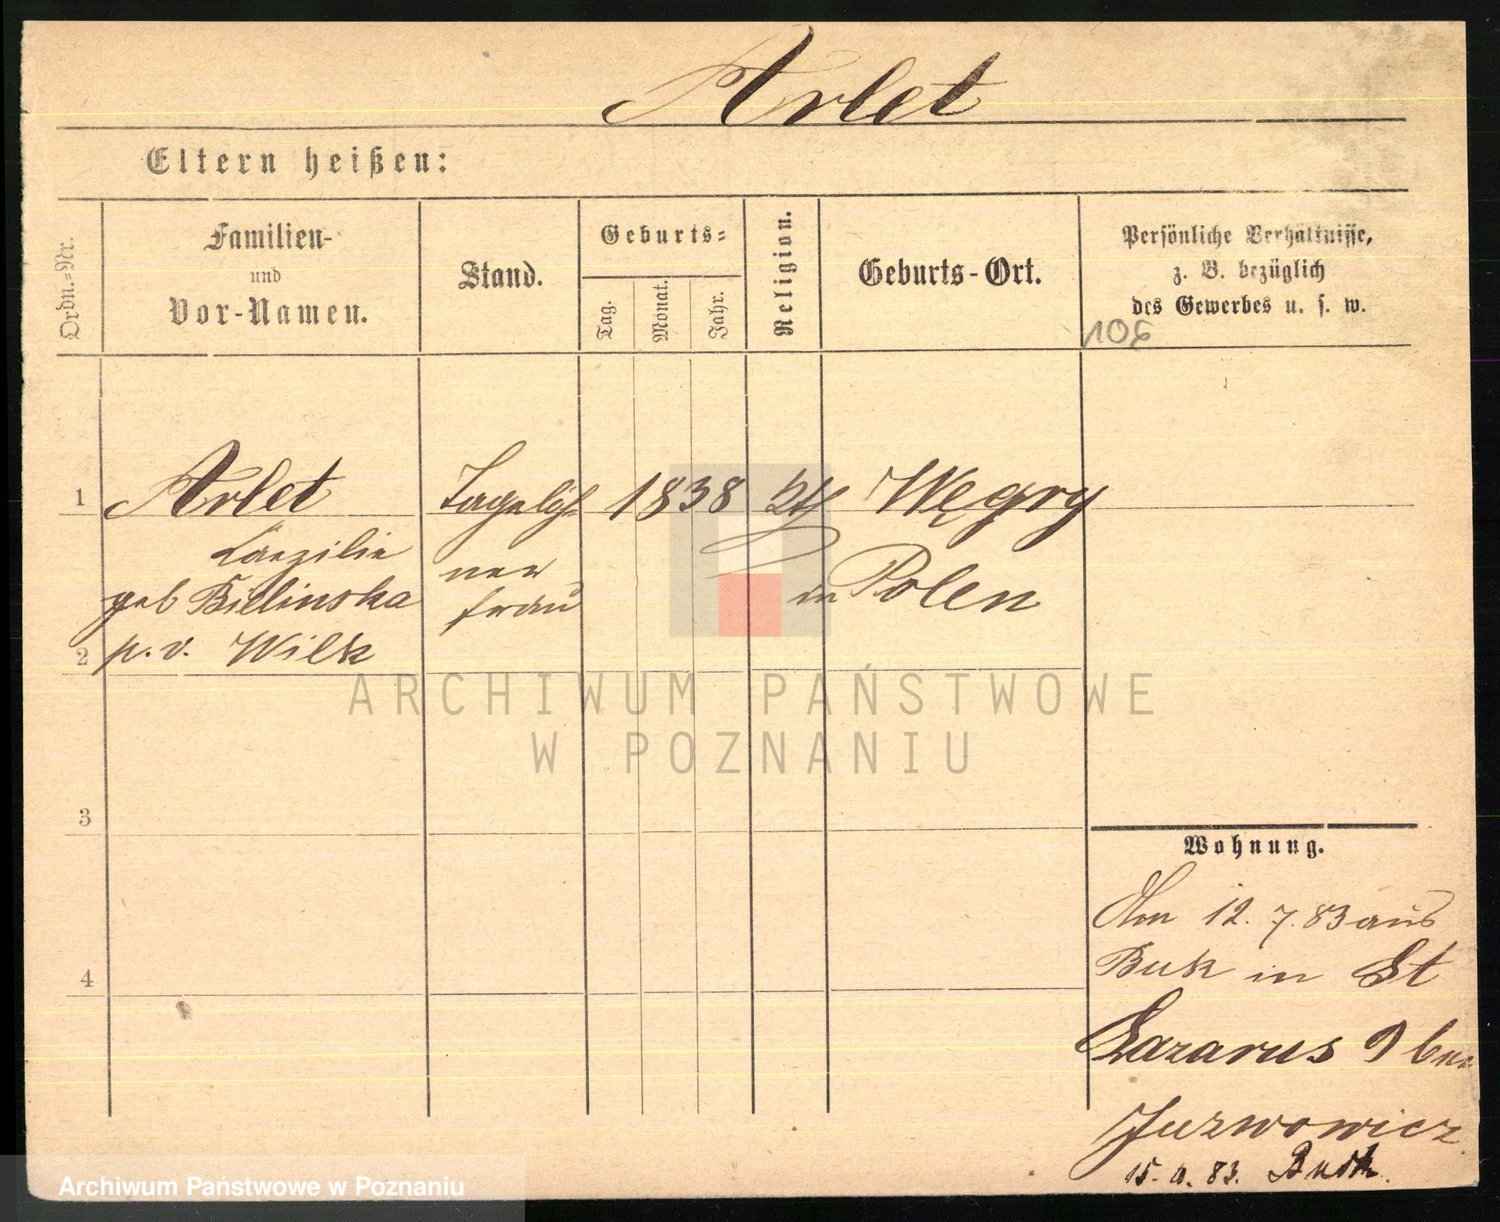 Arlet
Eltern heißen:
Ordn.-Nr.
Familien-
und
Vor-Namen.
Stand.
Geburts-
Tag.
Monat.
Jahr.
Religion.
Geburts-Ort.
Persönliche Verhältnisse,
z. B. bezüglich
des Gewerbes u. s. w.
1
Arlet
Caezilie
geb Bielinska
p. v. Wilk
Tagelöh-
ner
frau
1838
kth
Węgry
in Polen
2
3
4
Wohnung.
Am 12. 7. 83 aus
Buk in St
Lazarus 9 bei
Juzwowicz
15. 9. 83. Buk
ARCHIWUM PAŃSTWOWE
W POZNANIU
Archiwum Państwowe w Poznaniu